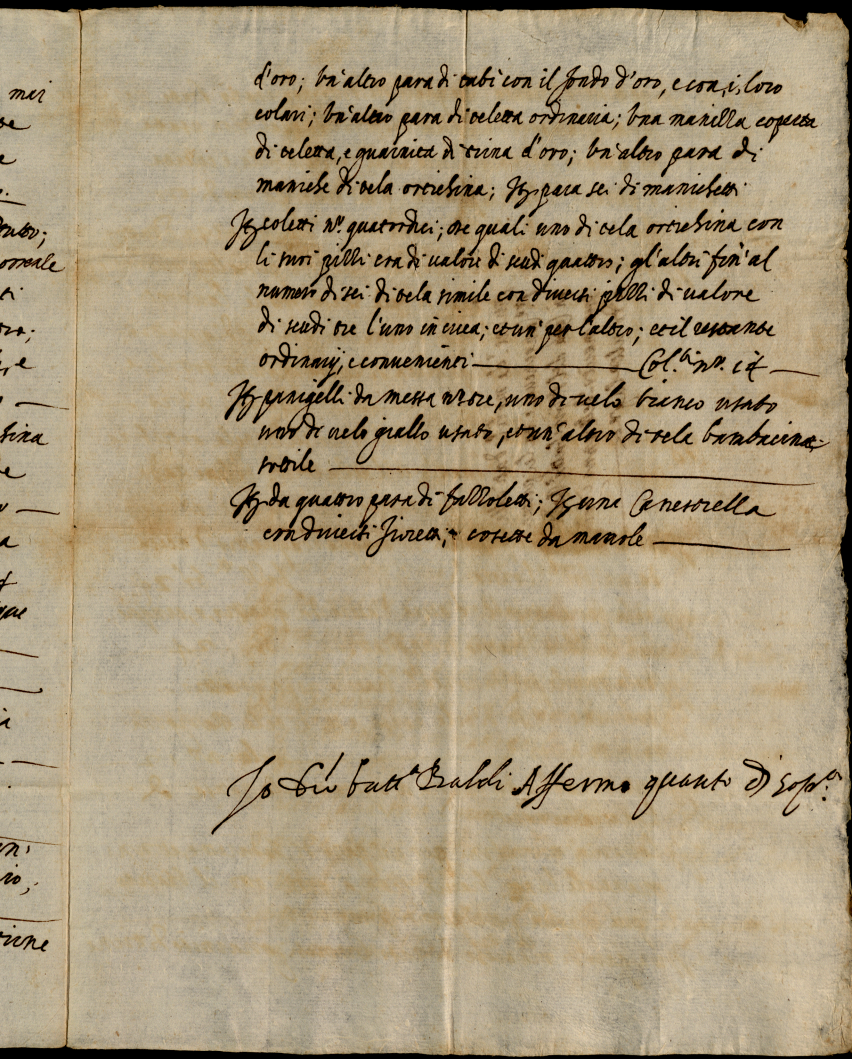 d'oro; un'altro para di tabi con il fondo d'oro, e con i loro
colari; un'altro para di veletta ordinaria; una manilla coperta
di veletta, e guarnita di trina d'oro; un'altro para di
maniche di tela ortichina; It para sei di manichetti
It coletti n.o quatordici; tre quali uno di tela ortichina con
li suoi pizzi era di valore di scudi quattro; gl'altri fin'al
numero di sei di tela simile con diversi pizzi di valore
di scudi tre l'uno in circa; et un per l'altro; et il restante
ordinarij, e convenienti Col.ti n.o 14
It panigelli da messa n.o tre, uno di velo bianco usato
uno di velo giallo usato, et un'altro di tela bambacina
sottile
It da quattro para di fazzoletti; It una Canestrella
con diversi fioretti, cosette da
Io Gio batt.a Baldi Affermo quanto di sop.a
mei
e
sina
a
que